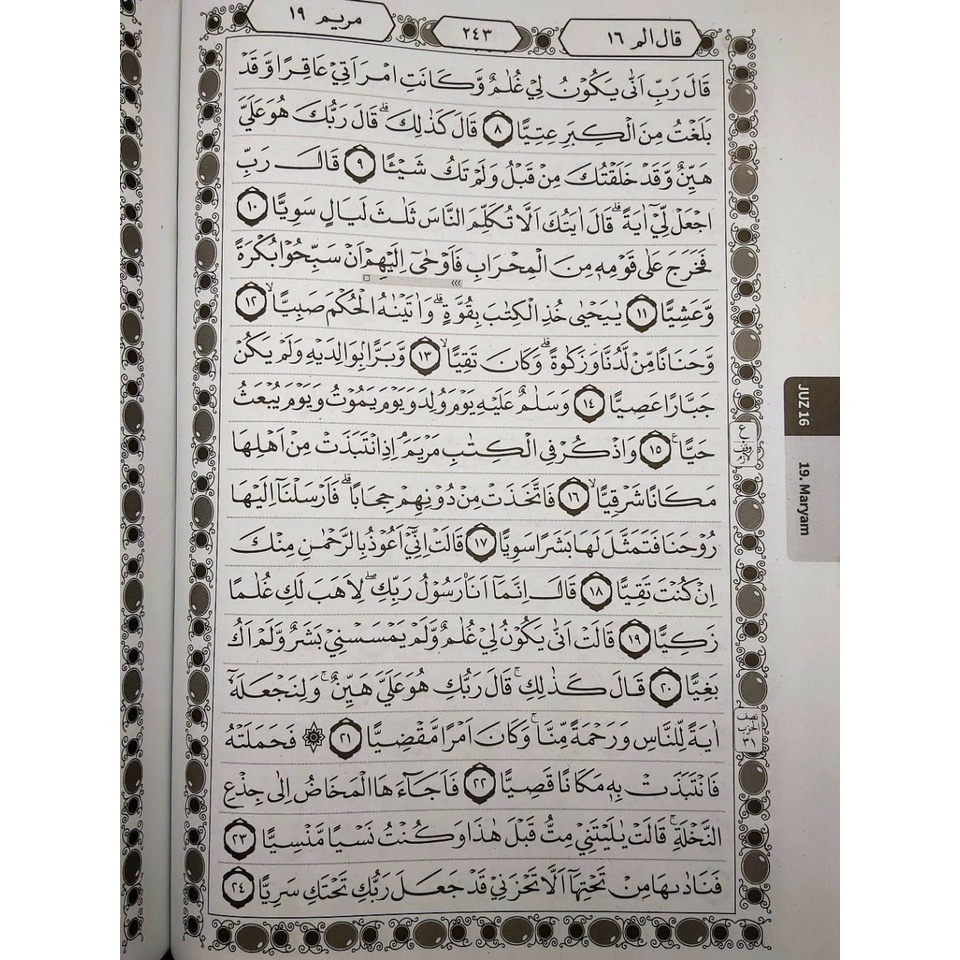 مريم ١٩
٢٤٣
قال الم ١٦
قَالَ رَبِّ اَنّٰى يَكُوْنُ لِيْ غُلٰمٌ وَّكَانَتِ امْرَاَتِيْ عَاقِرًا وَّقَدْ
بَلَغْتُ مِنَ الْكِبَرِ عِتِيًّا ٨ قَالَ كَذٰلِكَۗ قَالَ رَبُّكَ هُوَ عَلَيَّ
هَيِّنٌ وَّقَدْ خَلَقْتُكَ مِنْ قَبْلُ وَلَمْ تَكُ شَيْـًٔا ٩ قَالَ رَبِّ
اجْعَلْ لِّيْٓ اٰيَةًۗ قَالَ اٰيَتُكَ اَلَّا تُكَلِّمَ النَّاسَ ثَلٰثَ لَيَالٍ سَوِيًّا ١٠
فَخَرَجَ عَلٰى قَوْمِهٖ مِنَ الْمِحْرَابِ فَاَوْحٰىٓ اِلَيْهِمْ اَنْ سَبِّحُوْا بُكْرَةً
وَّعَشِيًّا ١١ يٰيَحْيٰى خُذِ الْكِتٰبَ بِقُوَّةٍۗ وَاٰتَيْنٰهُ الْحُكْمَ صَبِيًّاۙ ١٢
وَّحَنَانًا مِّنْ لَّدُنَّا وَزَكٰوةًۗ وَكَانَ تَقِيًّاۙ ١٣ وَّبَرًّاۢ بِوَالِدَيْهِ وَلَمْ يَكُنْ
جَبَّارًا عَصِيًّا ١٤ وَسَلٰمٌ عَلَيْهِ يَوْمَ وُلِدَ وَيَوْمَ يَمُوْتُ وَيَوْمَ يُبْعَثُ
حَيًّا ࣖ ١٥ وَاذْكُرْ فِى الْكِتٰبِ مَرْيَمَۘ اِذِ انْتَبَذَتْ مِنْ اَهْلِهَا
مَكَانًا شَرْقِيًّاۙ ١٦ فَاتَّخَذَتْ مِنْ دُوْنِهِمْ حِجَابًاۗ فَاَرْسَلْنَآ اِلَيْهَا
رُوْحَنَا فَتَمَثَّلَ لَهَا بَشَرًا سَوِيًّا ١٧ قَالَتْ اِنِّيْٓ اَعُوْذُ بِالرَّحْمٰنِ مِنْكَ
اِنْ كُنْتَ تَقِيًّا ١٨ قَالَ اِنَّمَآ اَنَا۠ رَسُوْلُ رَبِّكِۖ لِاَهَبَ لَكِ غُلٰمًا
زَكِيًّا ١٩ قَالَتْ اَنّٰى يَكُوْنُ لِيْ غُلٰمٌ وَّلَمْ يَمْسَسْنِيْ بَشَرٌ وَّلَمْ اَكُ
بَغِيًّا ٢٠ قَالَ كَذٰلِكِۚ قَالَ رَبُّكِ هُوَ عَلَيَّ هَيِّنٌۚ وَلِنَجْعَلَهٗٓ
اٰيَةً لِّلنَّاسِ وَرَحْمَةً مِّنَّاۚ وَكَانَ اَمْرًا مَّقْضِيًّا ٢١ ۞ فَحَمَلَتْهُ
فَانْتَبَذَتْ بِهٖ مَكَانًا قَصِيًّا ٢٢ فَاَجَاۤءَهَا الْمَخَاضُ اِلٰى جِذْعِ
النَّخْلَةِۚ قَالَتْ يٰلَيْتَنِيْ مِتُّ قَبْلَ هٰذَا وَكُنْتُ نَسْيًا مَّنْسِيًّا ٢٣
فَنَادٰىهَا مِنْ تَحْتِهَآ اَلَّا تَحْزَنِيْ قَدْ جَعَلَ رَبُّكِ تَحْتَكِ سَرِيًّا ٢٤
ع
وقف
لازم
نصف
الحزب
٣١
JUZ 16
19. Maryam